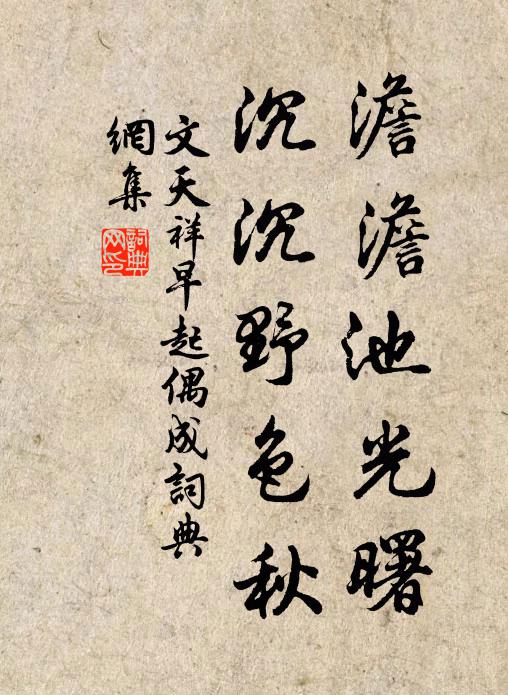 澹澹池光曙
沉沉野色秋
文天祥早起偶成詞典
網集
詞典網印